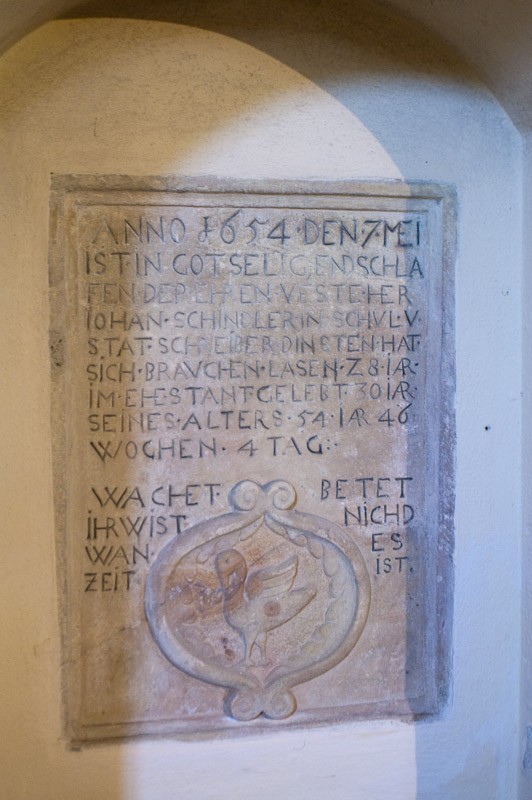 ANNO 1654·DEN·7·MEI
IST·IN·GOT·SELIG·ENDSCHLA
FEN·DER·EHREN·VESTE·HER
IOHAN·SCHINDLER·IN·SCHVL·V·
STAT·SCHREIBER DINSTEN·HAT·
SICH·BRAVCHEN·LASEN·Z8·IAR·
IM·EHESTANT·GELEBT·30·IAR·
SEINES·ALTERS·54·IAR 46
WOCHEN·4 TAG:·
WACHET· BETET
IHR WIST· NICHD
WAN· ES
ZEIT· IST·